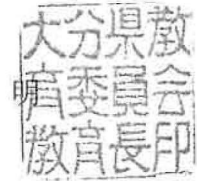 大分県教
明
育委員会
教育長印